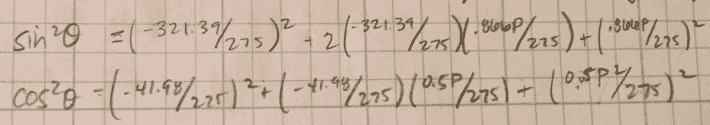 sin²θ = (-321.39/275)² + 2(-321.39/275)(.866P/275) + (.866P/275)²
cos²θ = (-41.98/275)² + (-41.98/275)(0.5P/275) + (0.5P²/275)²